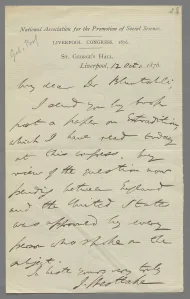 National Association for the Promotion of Social Science.
LIVERPOOL CONGRESS, 1876.
ST. GEORGE'S HALL,
Liverpool, 12 Oct 1876.
My dear Dr Bluntschli,
I send you by book
post a paper on Extradition,
which I have read today
at this congress. My
view of the question now
pending between England
and the United States
was approved by every
person who spoke on the
subject.
Yours very truly
J. Westlake